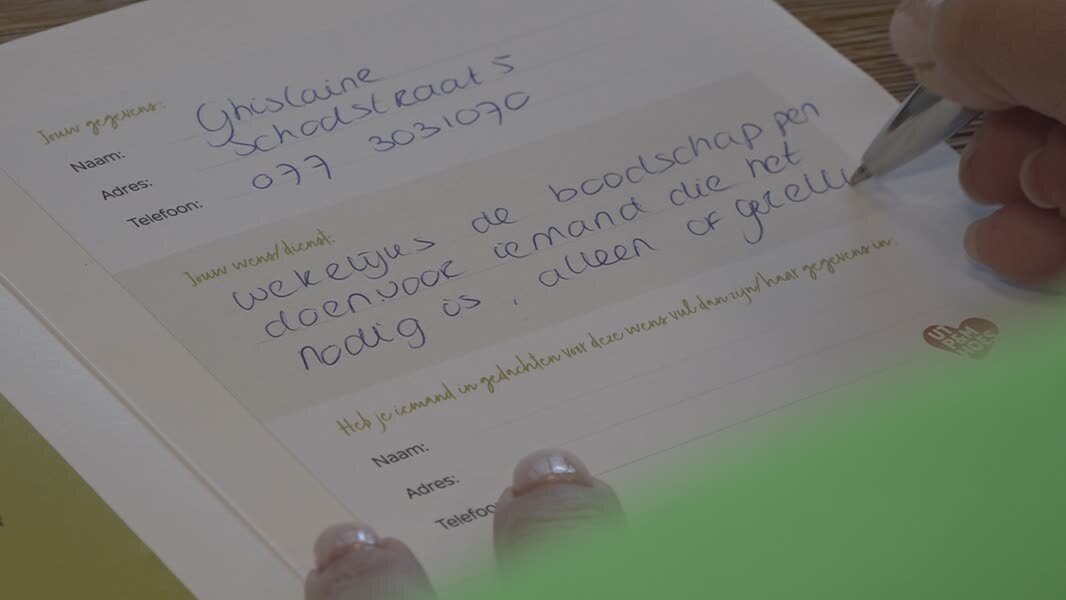 Jouw gegevens:
Naam: Ghislaine
Adres: Schoolstraat 5
Telefoon: 077 3031070
Jouw wens/dienst:
wekelijks de boodschappen
doen voor iemand die het
nodig is, alleen of gezelli
Heb je iemand in gedachten voor deze wens vul dan zijn/haar gegevens in:
Naam:
Adres:
Telefoo